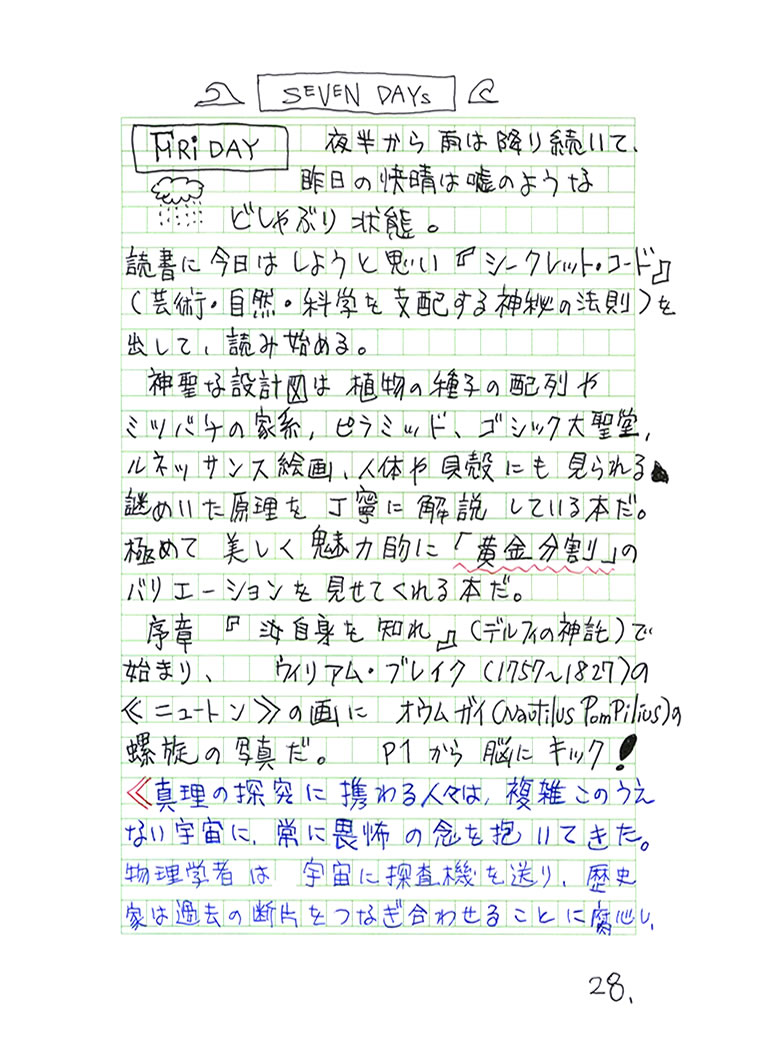 SEVEN DAYs
FRiDAY 夜半から雨は降り続いて、
昨日の快晴は嘘のような
どしゃぶり状態。
読書に今日はしようと思い『シークレット・コード』
(芸術・自然・科学を支配する神秘の法則)を
出して、読み始める。
神聖な設計図は植物の種子の配列や
ミツバチの家系，ピラミッド、ゴシック大聖堂，
ルネッサンス絵画、人体や貝殻にも見られる
謎めいた原理を丁寧に解説している本だ。
極めて美しく魅力的に「黄金分割」の
バリエーションを見せてくれる本だ。
序章『汝自身を知れ』(デルフィの神託)で
始まり、ウィリアム・ブレイク(1757～1827)の
≪ニュートン≫の画にオウムガイ(Nautilus PomPilius)の
螺旋の写真だ。P1から脳にキック!
≪真理の探究に携わる人々は，複雑このうえ
ない宇宙に，常に畏怖の念を抱いてきた。
物理学者は宇宙に探査機を送り、歴史
家は過去の断片をつなぎ合わせることに腐心し、
28.